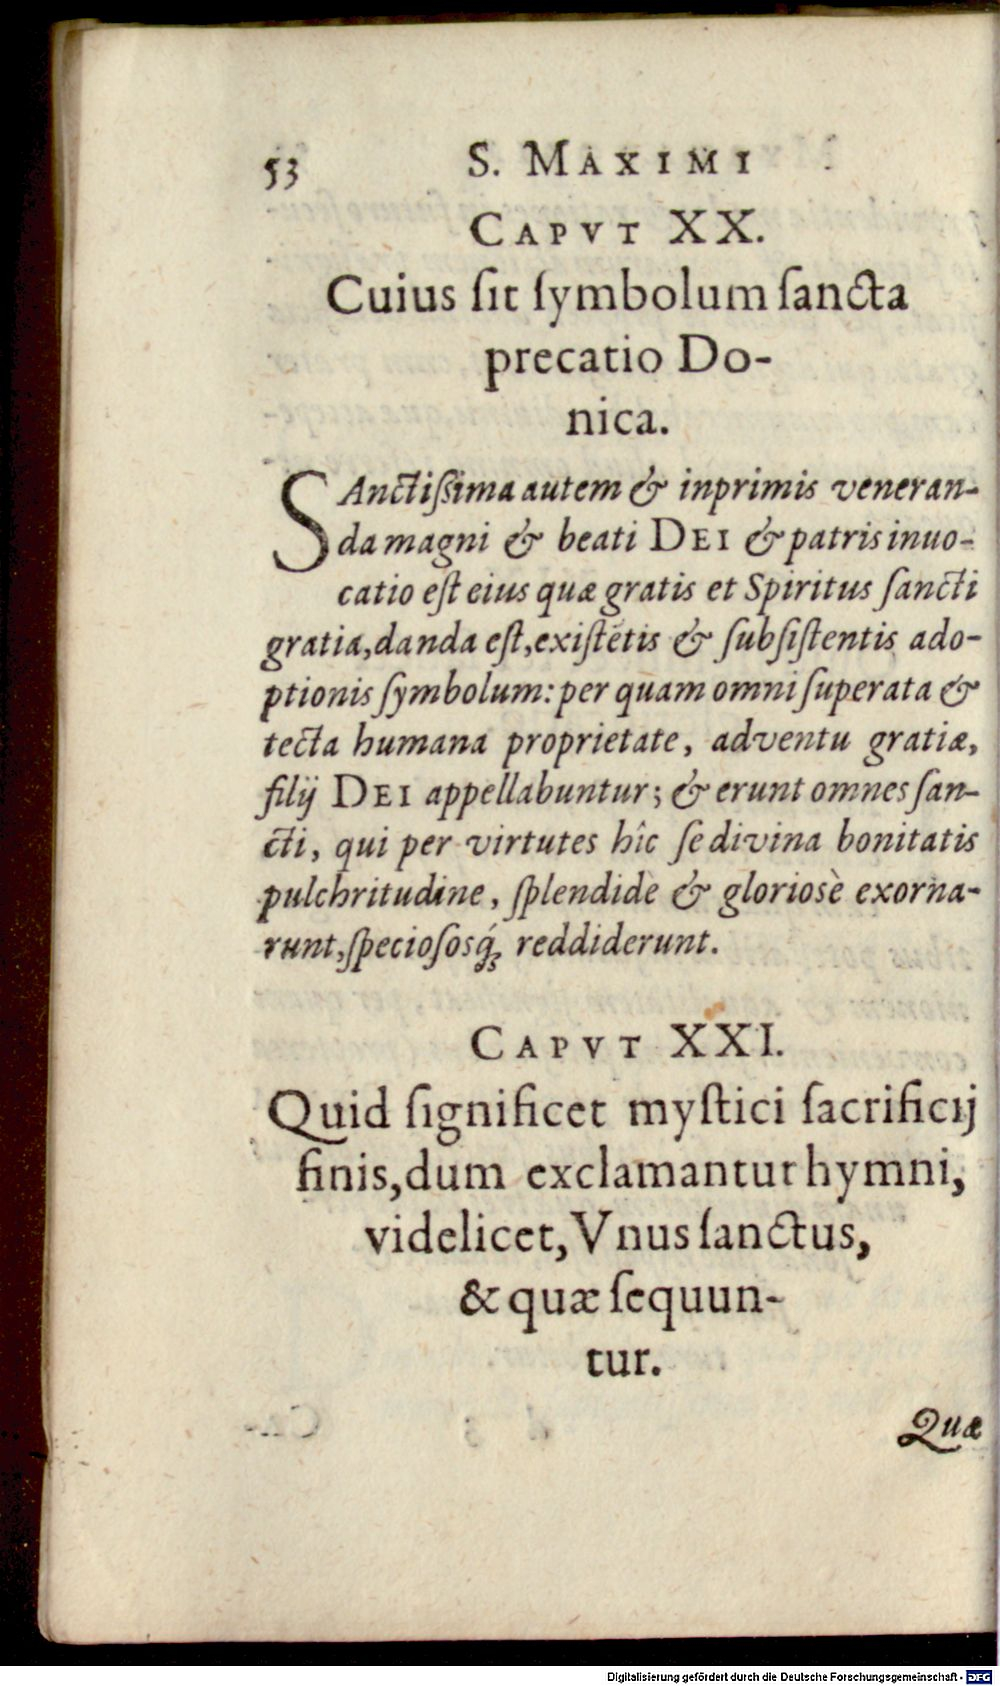 53 S. MAXIMI
CAPVT XX.
Cuius ſit ſymbolum ſancta
precatio Do-
nica.
SAnctiſsima autem & inprimis veneran-
da magni & beati DEI & patris inuo-
catio eſt eius quæ gratis et Spiritus ſancti
gratia, danda eſt, exiſtētis & ſubſiſtentis ado-
ptionis ſymbolum: per quam omni ſuperata &
tecta humana proprietate, adventu gratiæ,
filij DEI appellabuntur; & erunt omnes ſan-
cti, qui per virtutes hîc ſe divina bonitatis
pulchritudine, ſplendide & glorioſè exorna-
runt, ſpecioſosq́ꝫ reddiderunt.
CAPVT XXI.
Quid ſignificet myſtici ſacrificij
finis, dum exclamantur hymni,
videlicet, Vnus ſanctus,
& quæ ſequun-
tur.
Quæ
Digitalisierung gefördert durch die Deutsche Forschungsgemeinschaft - DFG